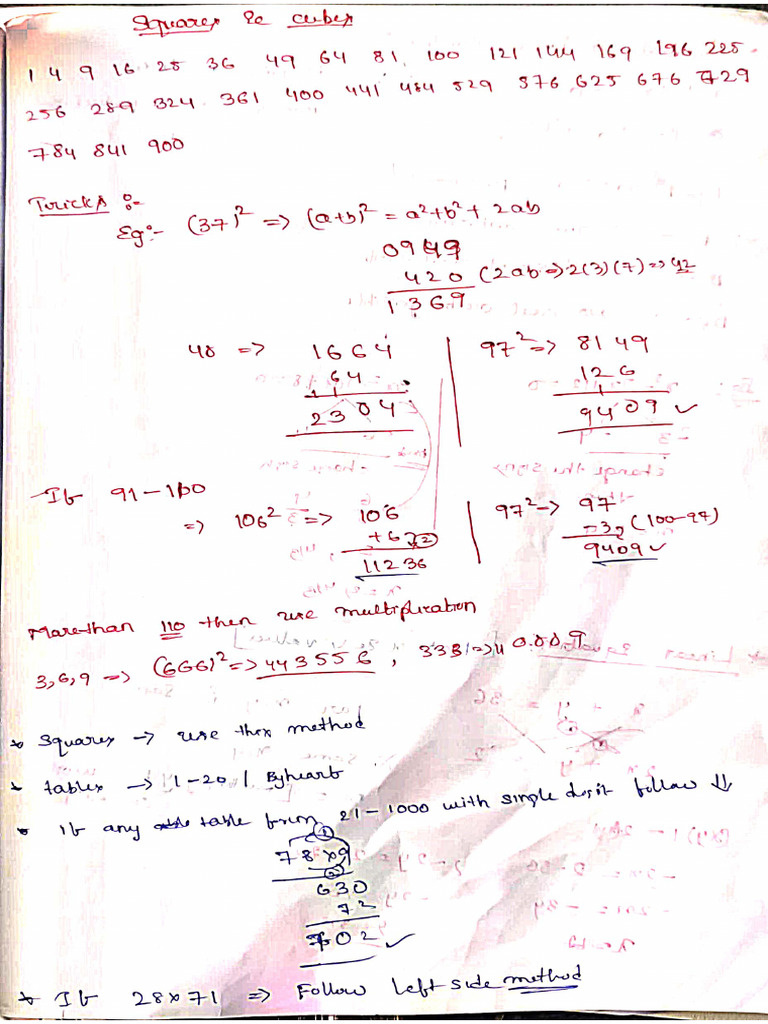 Squares & cubes
1 4 9 16 25 36 49 64 81 100 121 144 169 196 225
256 289 324 361 400 441 484 529 576 625 676 729
784 841 900
Tricks :-
Eg:- (37)² => (a+b)² = a²+b²+ 2ab
0949
420 (2ab => 2(3)(7) => 42
1369
48 => 1664
64
2304
97² => 8149
126
9409 ✓
If 91-110
=> 106² => 106
+6
11236
97² -> 97
-3 (100-97)
9409 ✓
More than 110 then use multiplication
3,6,9 => (666)² => 443556 ,
* squares -> use this method
* tables -> 1-20 / Byheart
* If any table from 21-1000 with single digit follow ⇓
78×9
630
72
702 ✓
* If 28×71 => Follow left side method